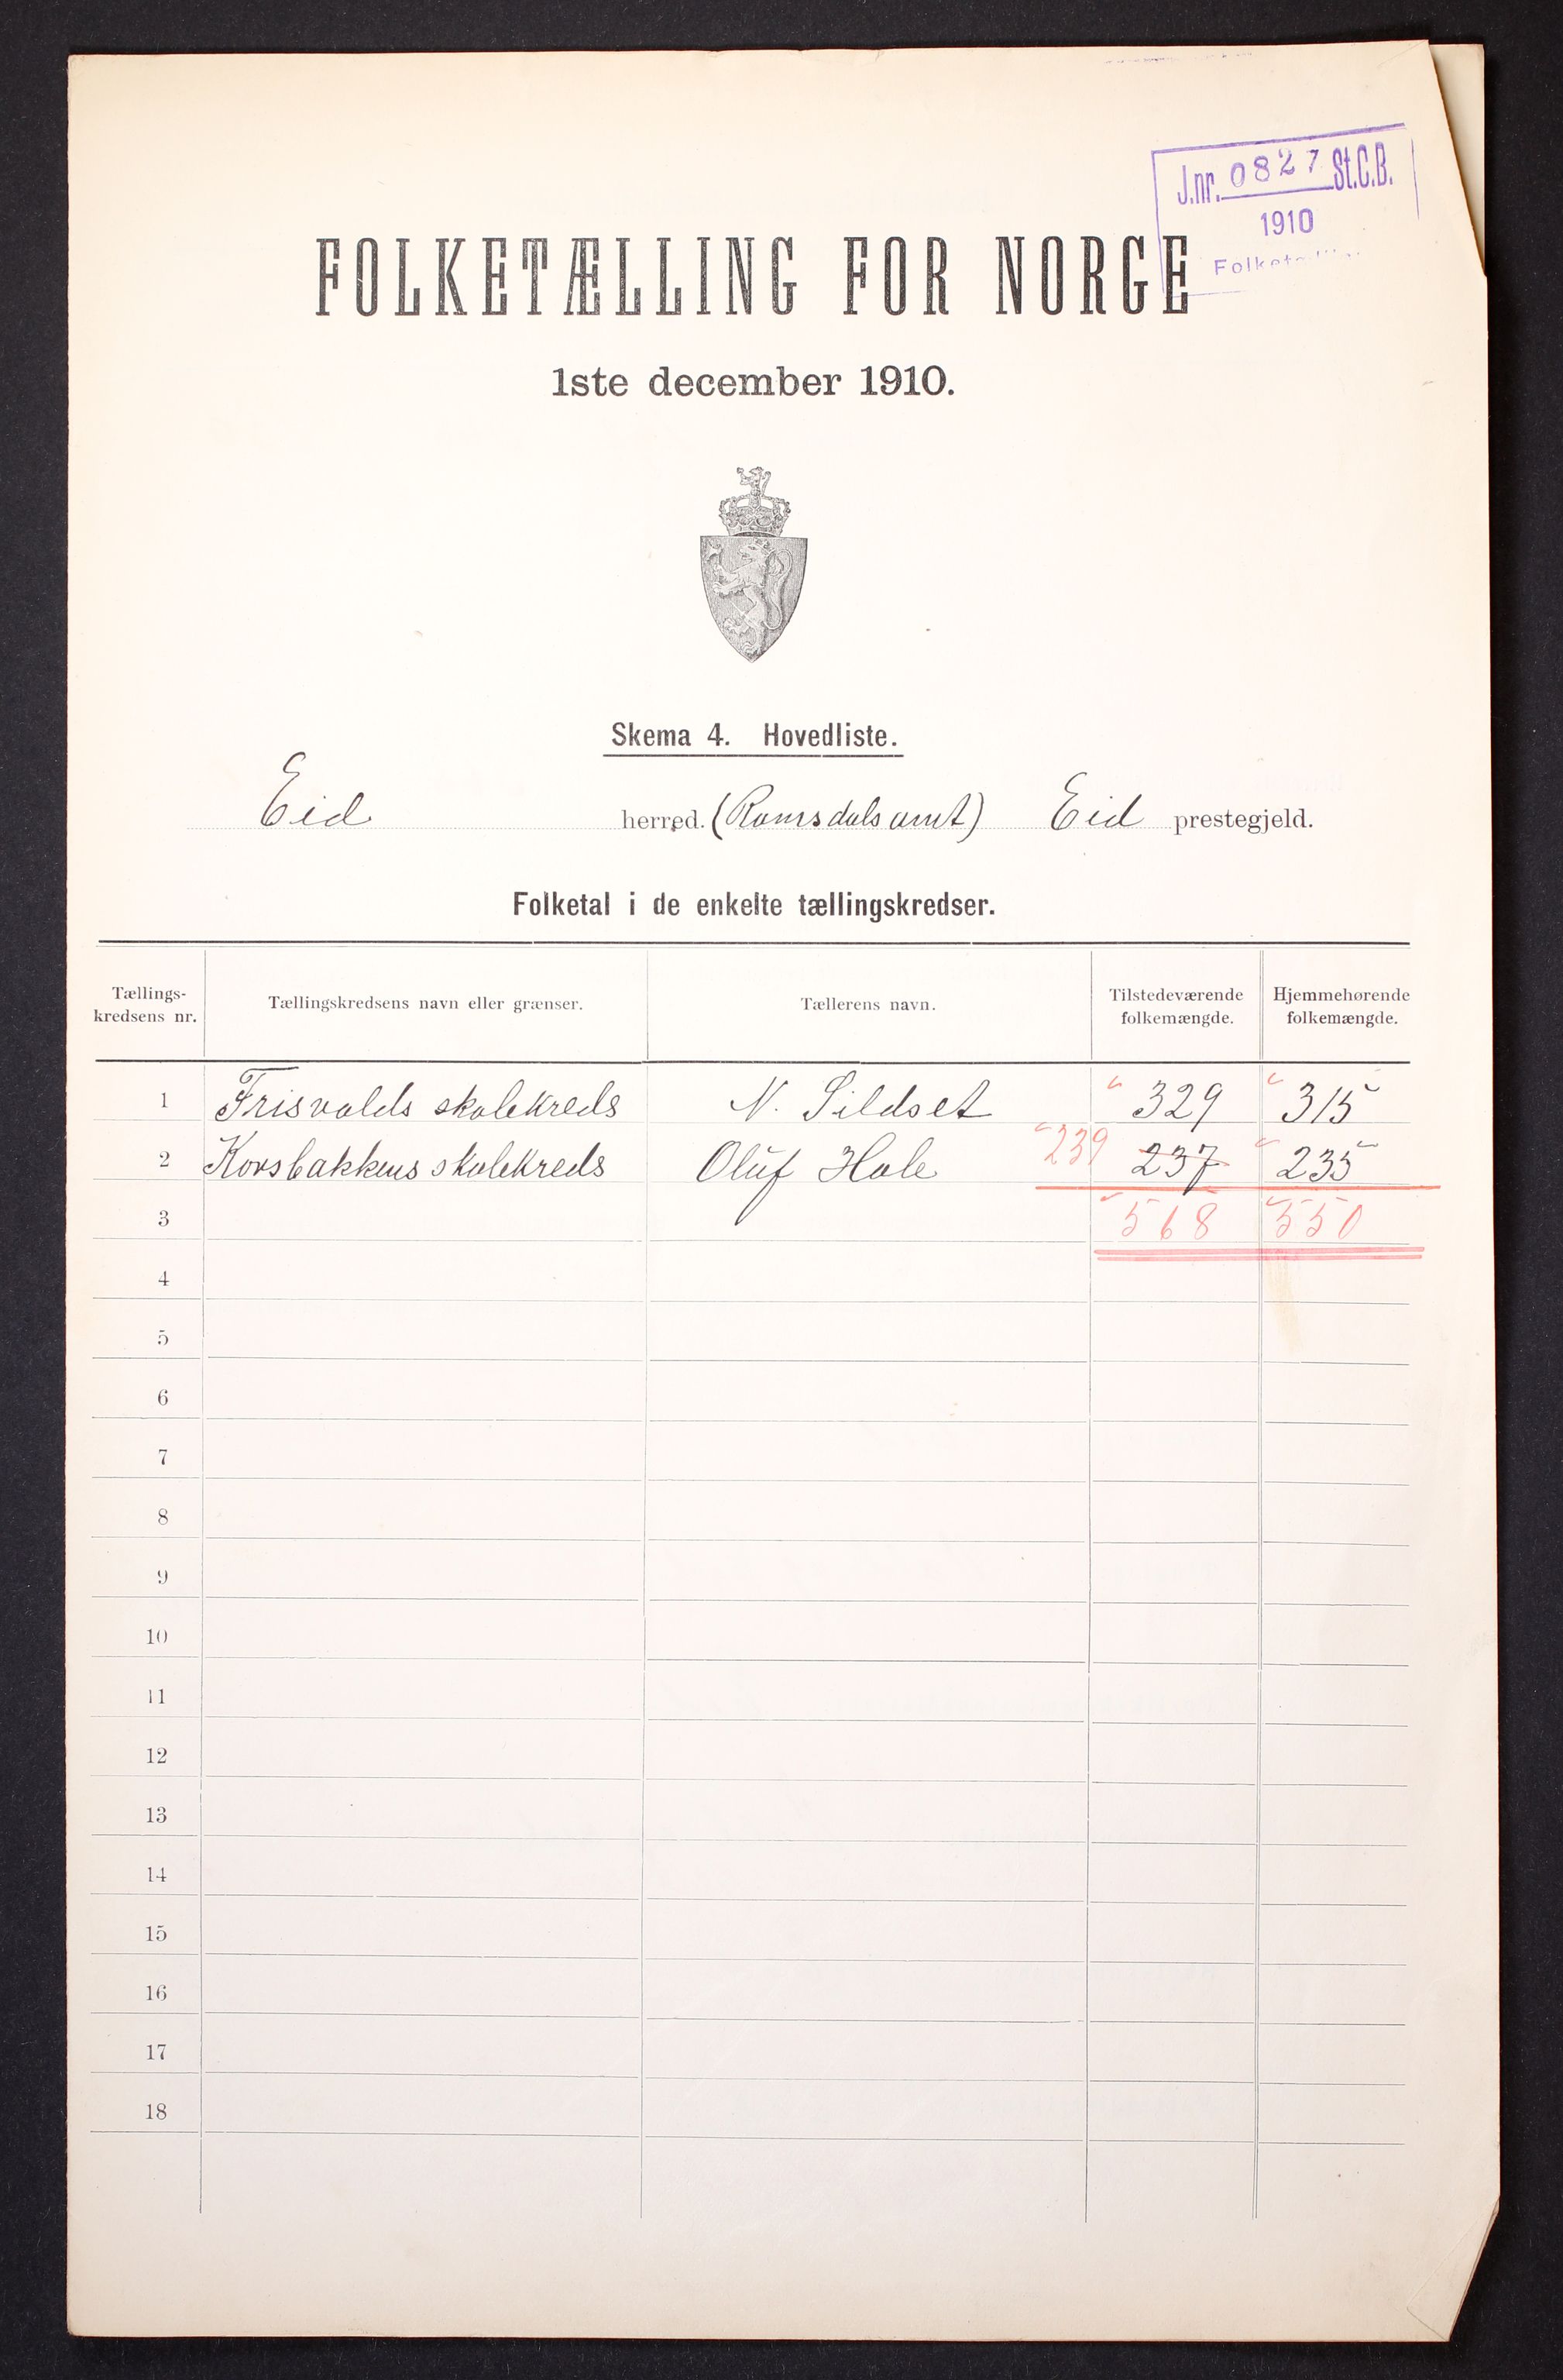 J.nr. 0827 St.C.B.
1910
FOLKETÆLLING FOR NORGE
1ste december 1910.
Skema 4. Hovedliste.
Eid herred. (Romsdals amt) Eid prestegjeld.
Folketal i de enkelte tællingskredser.
Tællings-kredsens nr. Tællingskredsens navn eller grænser. Tællerens navn. Tilstedeværende folkemængde. Hjemmehørende folkemængde.
1 Frisvolds skolekreds N. Sildset 329 315
2 Korsbakkens skolekreds Oluf Hole 239 237 235
3 568 550
4
5
6
7
8
9
10
11
12
13
14
15
16
17
18